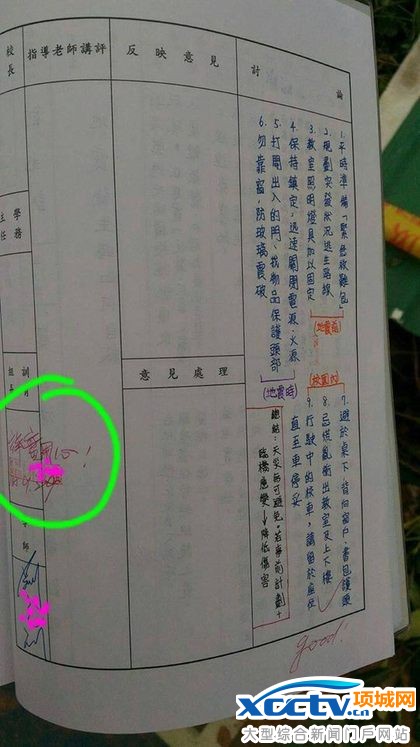 討論
1.平時準備「緊急救難包」
2.規劃突發狀況逃生路線
3.教室照明燈具加以固定
(地震前)
4.保持鎮定，迅速關閉電源、火源
5.打開出入的門，找物品保護頭部
6.勿靠窗，防玻璃震破
(地震時)
(校園內)
7.避於桌下，背向窗戶，書包護頭
8.忌慌亂衝出教室及上下樓
9.行駛中的校車，請留於座位
直至車停妥
總結：天災無可避免，若事前計劃+
臨機應變→降低傷害
good!
反映意見
意見處理
指導老師講評
校長
學務
主任
訓育
組長
師
xcctv.cn
项城网
大型综合新闻门户网站